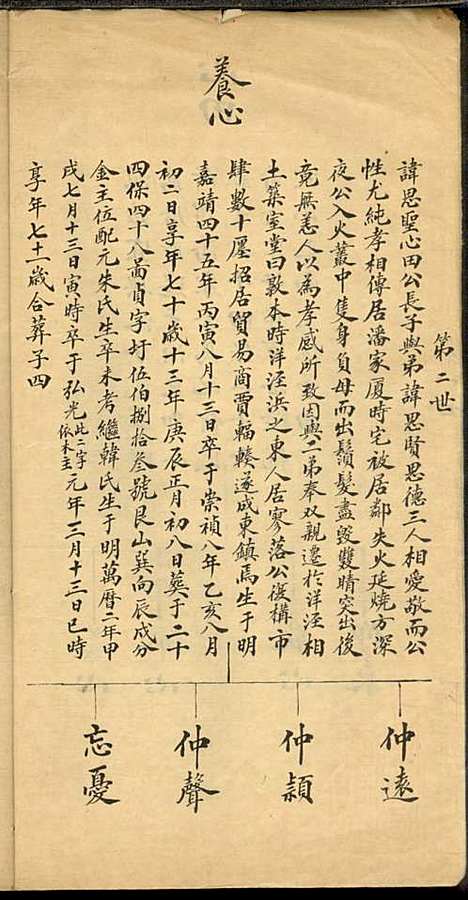 第二世
養心
諱思聖心田公長子與弟諱思賢思德三人相愛敬而公
性尤純孝相傳居潘家厦時宅被居鄰失火延燒方深
夜公入火叢中隻身負母而出鬚髮盡毀雙睛突出後
竟無恙人以為孝感所致因與二弟奉双親遷於洋涇相
土築室堂曰敦本時洋涇浜之東人居寥落公復構市
肆數十廛招居貿易商賈輻輳遂成東鎮焉生于明
嘉靖四十五年丙寅八月十三日卒于崇禎八年乙亥八月
初二日享年七十歲十三年庚辰正月初八日葬于二十
四保四十八啚貞字圩伍伯捌拾叁號艮山巽向辰戍分
金主位配元朱氏生卒未考繼韓氏生于明萬曆二年甲
戌七月十三日寅時卒于弘光此二字依木主元年三月十三日巳時
享年七十二歲合葬子四
仲遠
仲穎
仲聲
忘憂